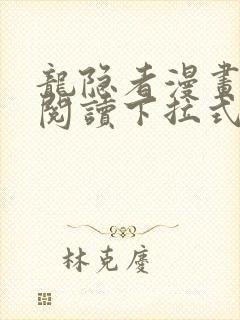 龍隐者漫畫
閱讀下拉式
林克慶